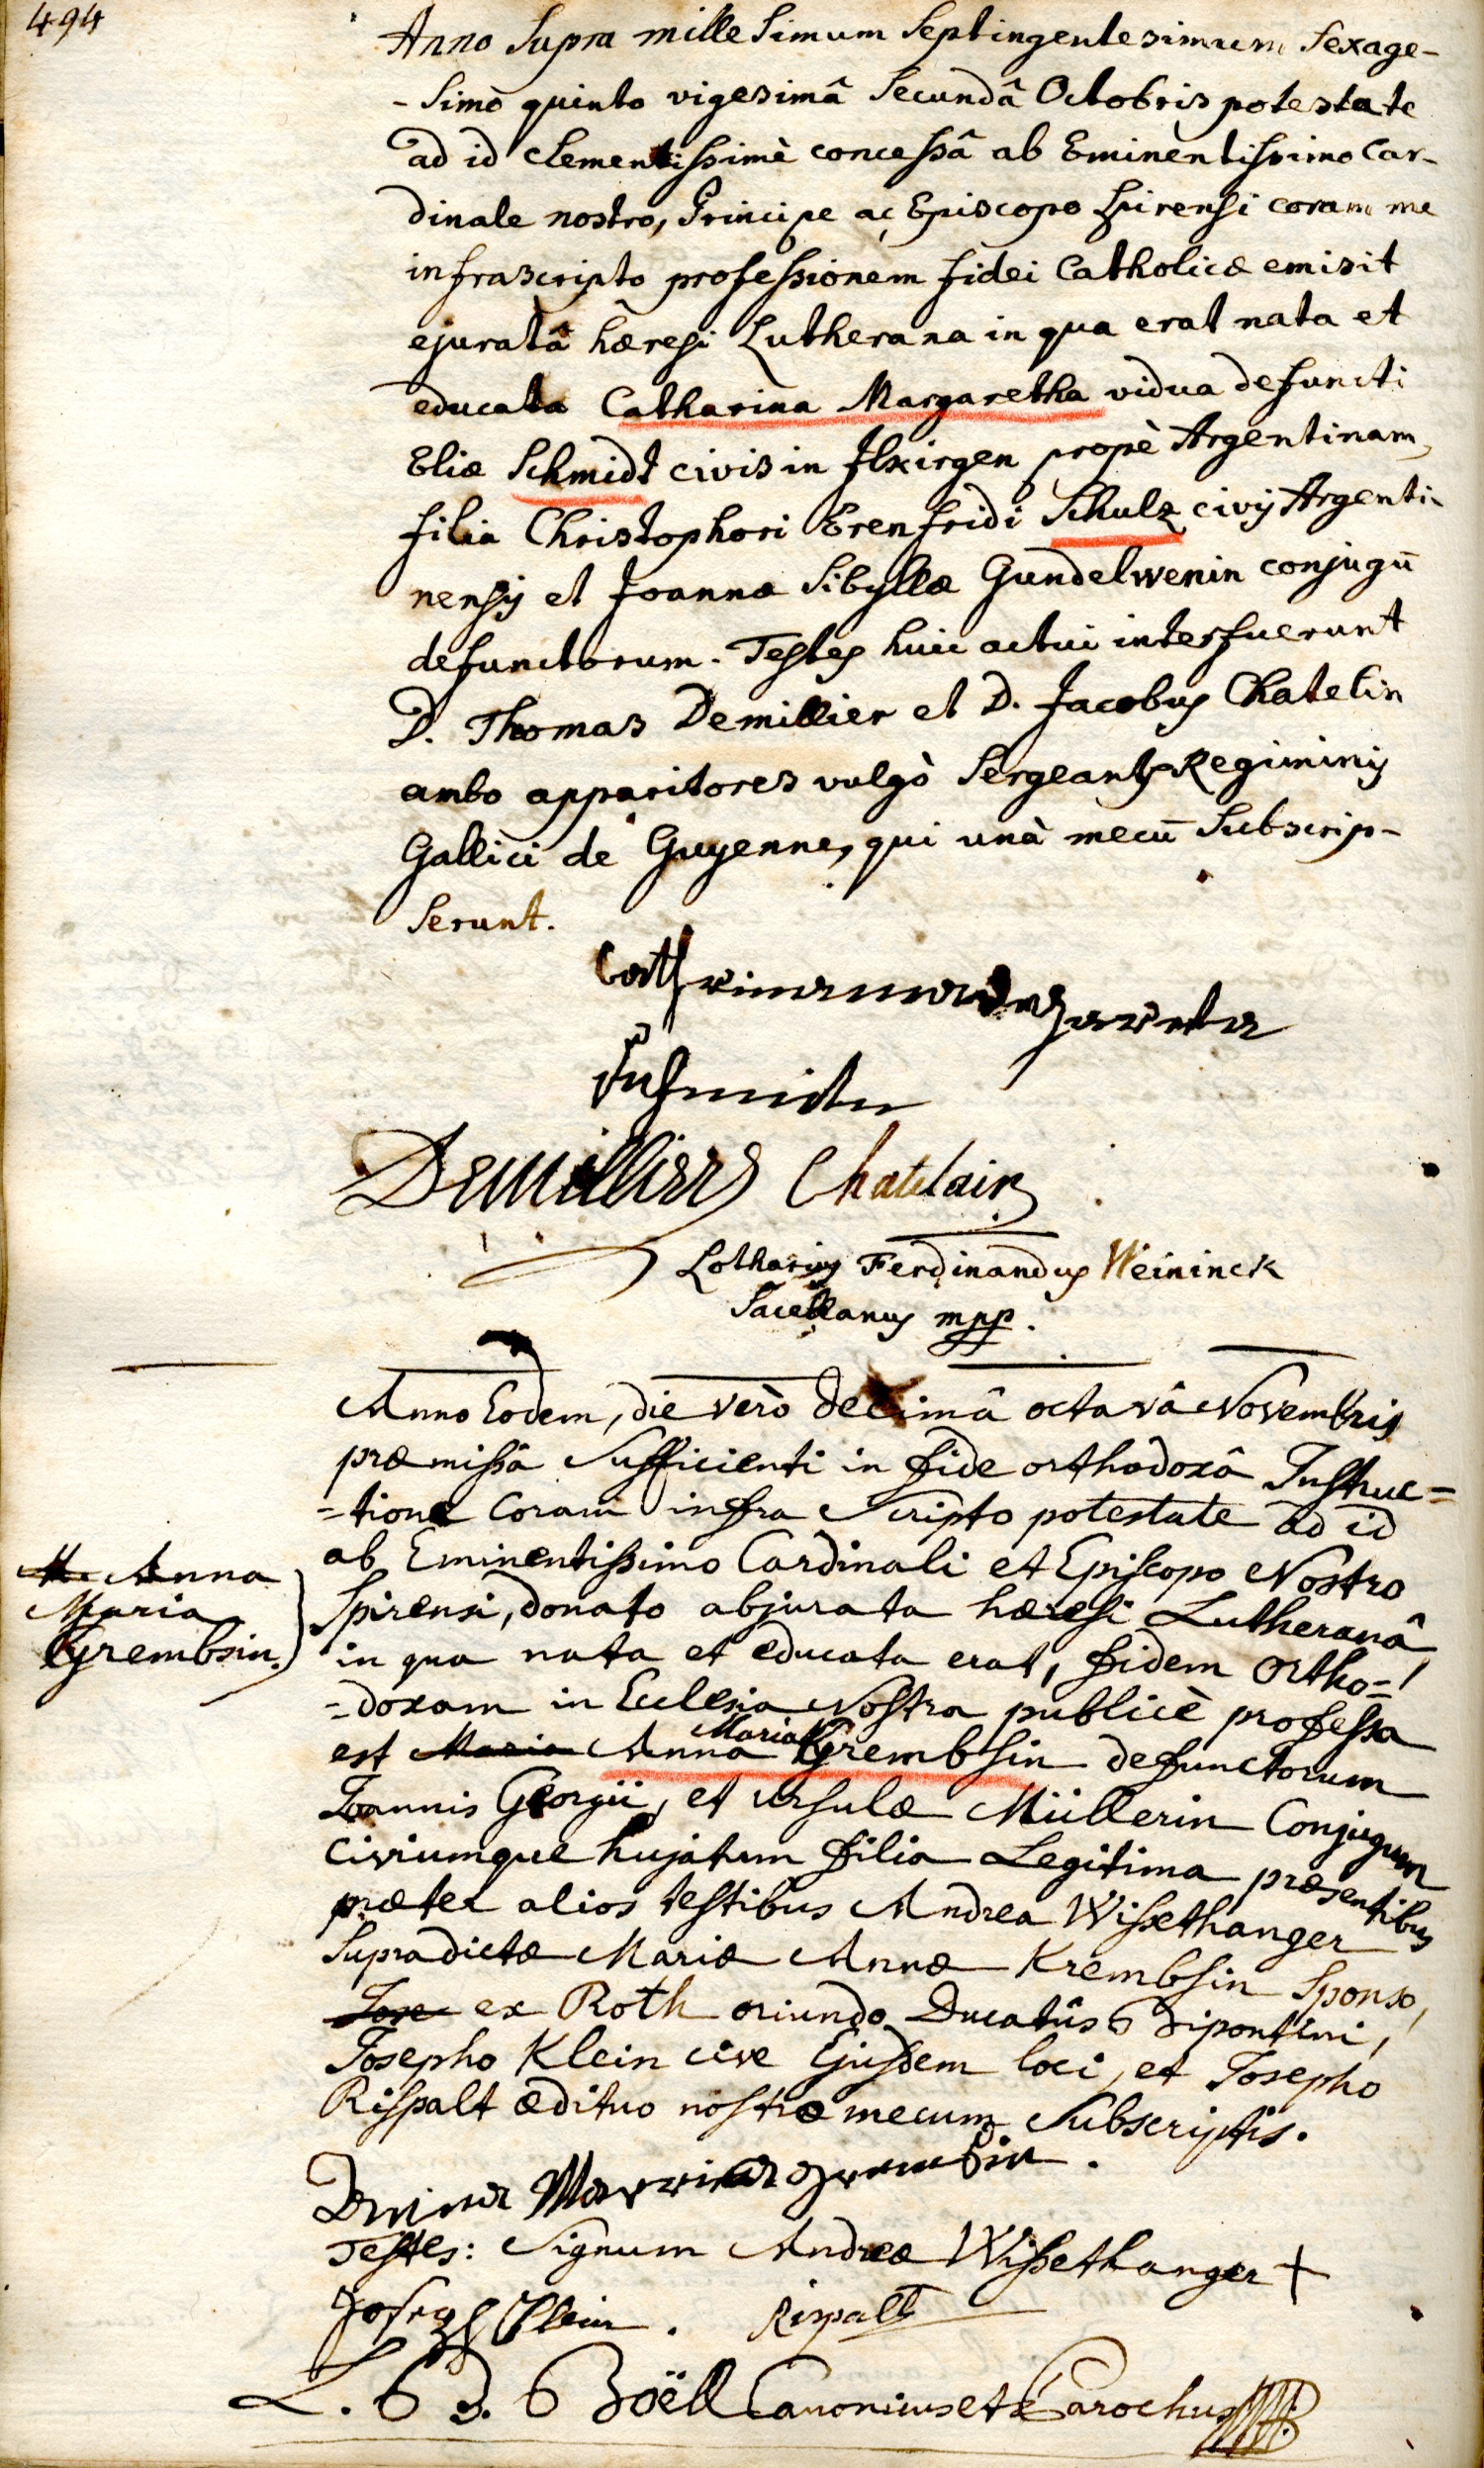 494
Anno Supra millesimum Septingentesimum Sexage-
-Simo quinto vigesimâ Secundâ Octobris potestate
ad id clementissimè concessâ ab Eminentissimo Car-
dinale nostro, Principe ac Episcopo Spirensi coram me
infrascripto professionem fidei Catholicæ emisit
ejuratâ hæresi Lutherana in qua erat nata et
educata Catharina Margaretha vidua defuncti
Eliæ Schmidt civis in Ilkirgen propè Argentinam,
filia Christophori Erenfridi Schulz civis Argenti-
nensis et Joannæ Sibyllæ Gundelwenin conjugū
defunctorum. Testes huic actui interfuerunt
D. Thomas Demillier et D. Jacobus Chatelin
ambo apparitores vulgò Sergeants Regiminis
Gallici de Guyenne, qui unà mecū Subscrip-
Serunt.
Catharina margareta
Schmidin
Demillier Chatelain
Lotharius Ferdinandus Weininck
Sacellanus mpp.
Anno Eodem, die verò decimâ octavâ Novembris
præmissâ Sufficienti in fide orthodoxâ Instruc=
=tione Coram infra Scripto potestate ad id
ab Eminentissimo Cardinali et Episcopo Nostro
Spirensi, donato abjurata hæresi Lutheranâ
M. Anna
Maria
Grembsin.
in qua nata et educata erat, fidem Ortho=
=doxam in Ecclesia Nostra publicè professa
est Maria Anna Maria Grembsin defunctorum
Joannis Georgii, et Ursulæ Müllerin Conjugum
Civiumque hujatum filia Legitima præsentibus
præter alios testibus Andrea Wissethanger
Supradictæ Mariæ Annæ Krembsin Sponso,
Jose ex Roth oriundo Ducatûs Bipontini,
Josepho Klein cive Ejusdem loci, et Josepho
Rispalt ædituo nostræ mecum Subscriptis.
Anna Maria grembsin.
Testes: Signum Andreæ Wissethanger +
Joseph Klein. Rispalt
L. B. J. B Böell Canonicus et Parochus